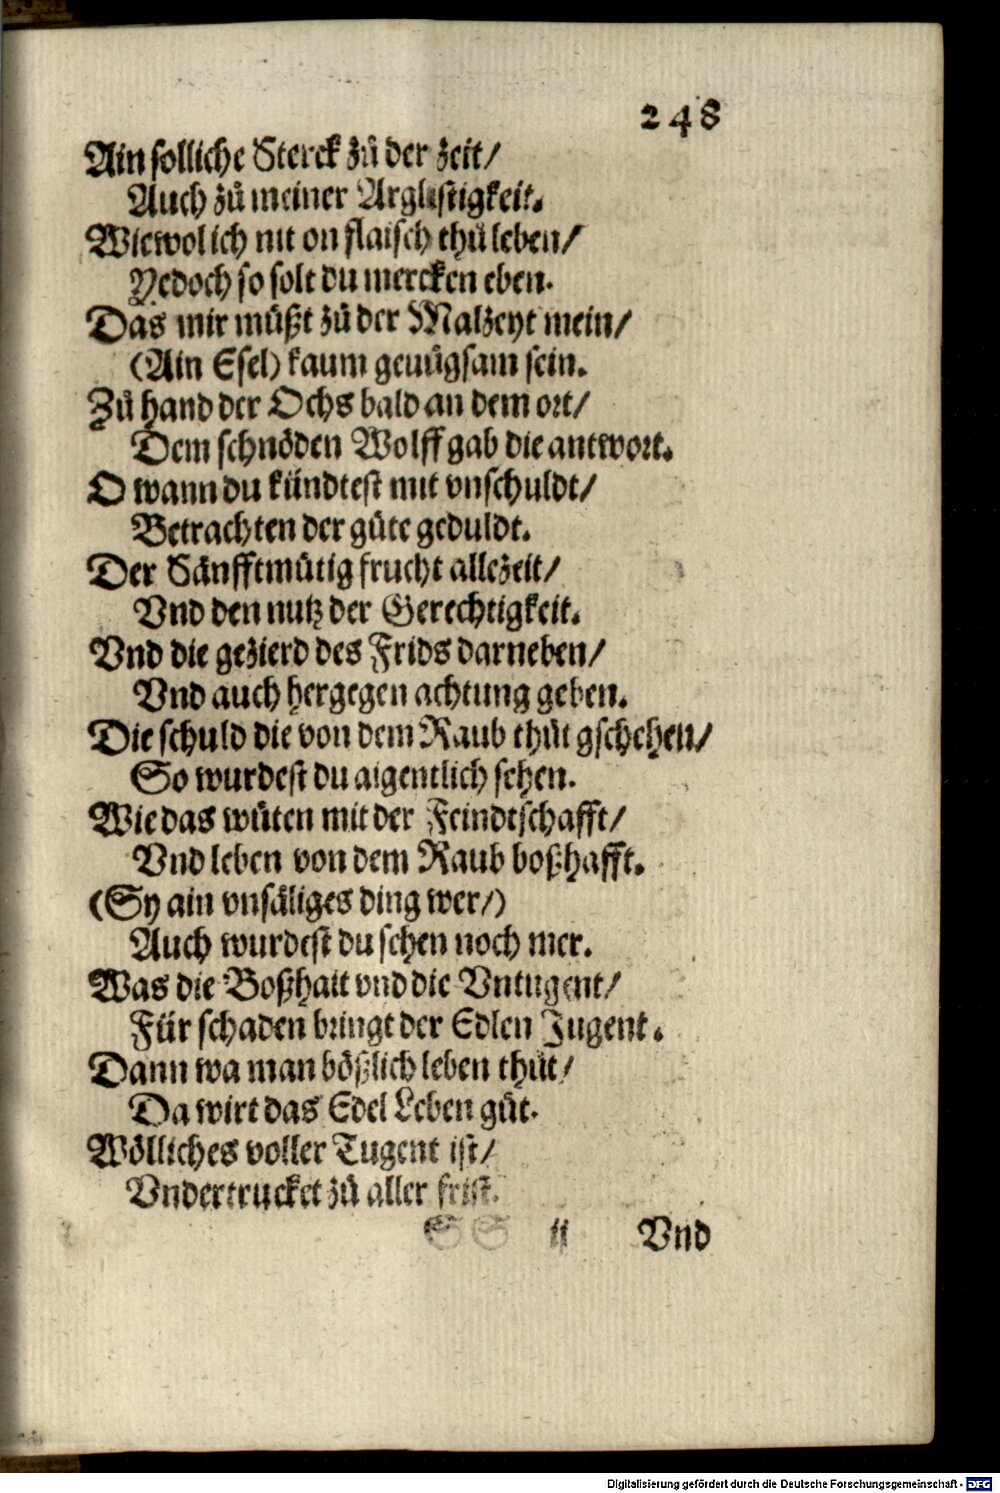 248
Ain solliche Sterck zů der zeit/
Auch zů meiner Arglistigkeit.
Wiewol ich nit on flaisch thů leben/
Yedoch so solt du mercken eben.
Das mir müßt zů der Malzeyt mein/
(Ain Esel) kaum genůgsam sein.
Zů hand der Ochs bald an dem ort/
Dem schnöden Wolff gab die antwort.
O wann du kündtest mit vnschuldt/
Betrachten der güte geduldt.
Der Sänfftmütig frucht allezeit/
Vnd den nutz der Gerechtigkeit.
Vnd die gezierd des Frids darneben/
Vnd auch hergegen achtung geben.
Die schuld die von dem Raub thůt gschehen/
So wurdest du aigentlich sehen.
Wie das wüten mit der Feindtschafft/
Vnd leben von dem Raub boßhafft.
(Sy ain vnsäliges ding wer/)
Auch wurdest du sehen noch mer.
Was die Boßhait vnd die Vntugent/
Für schaden bringt der Edlen Jugent.
Dann wa man bößlich leben thůt/
Da wirt das Edel Leben gůt.
Wölliches voller Tugent ist/
Vndertrucket zů aller frist.
SS ij Vnd
Digitalisierung gefördert durch die Deutsche Forschungsgemeinschaft - DFG